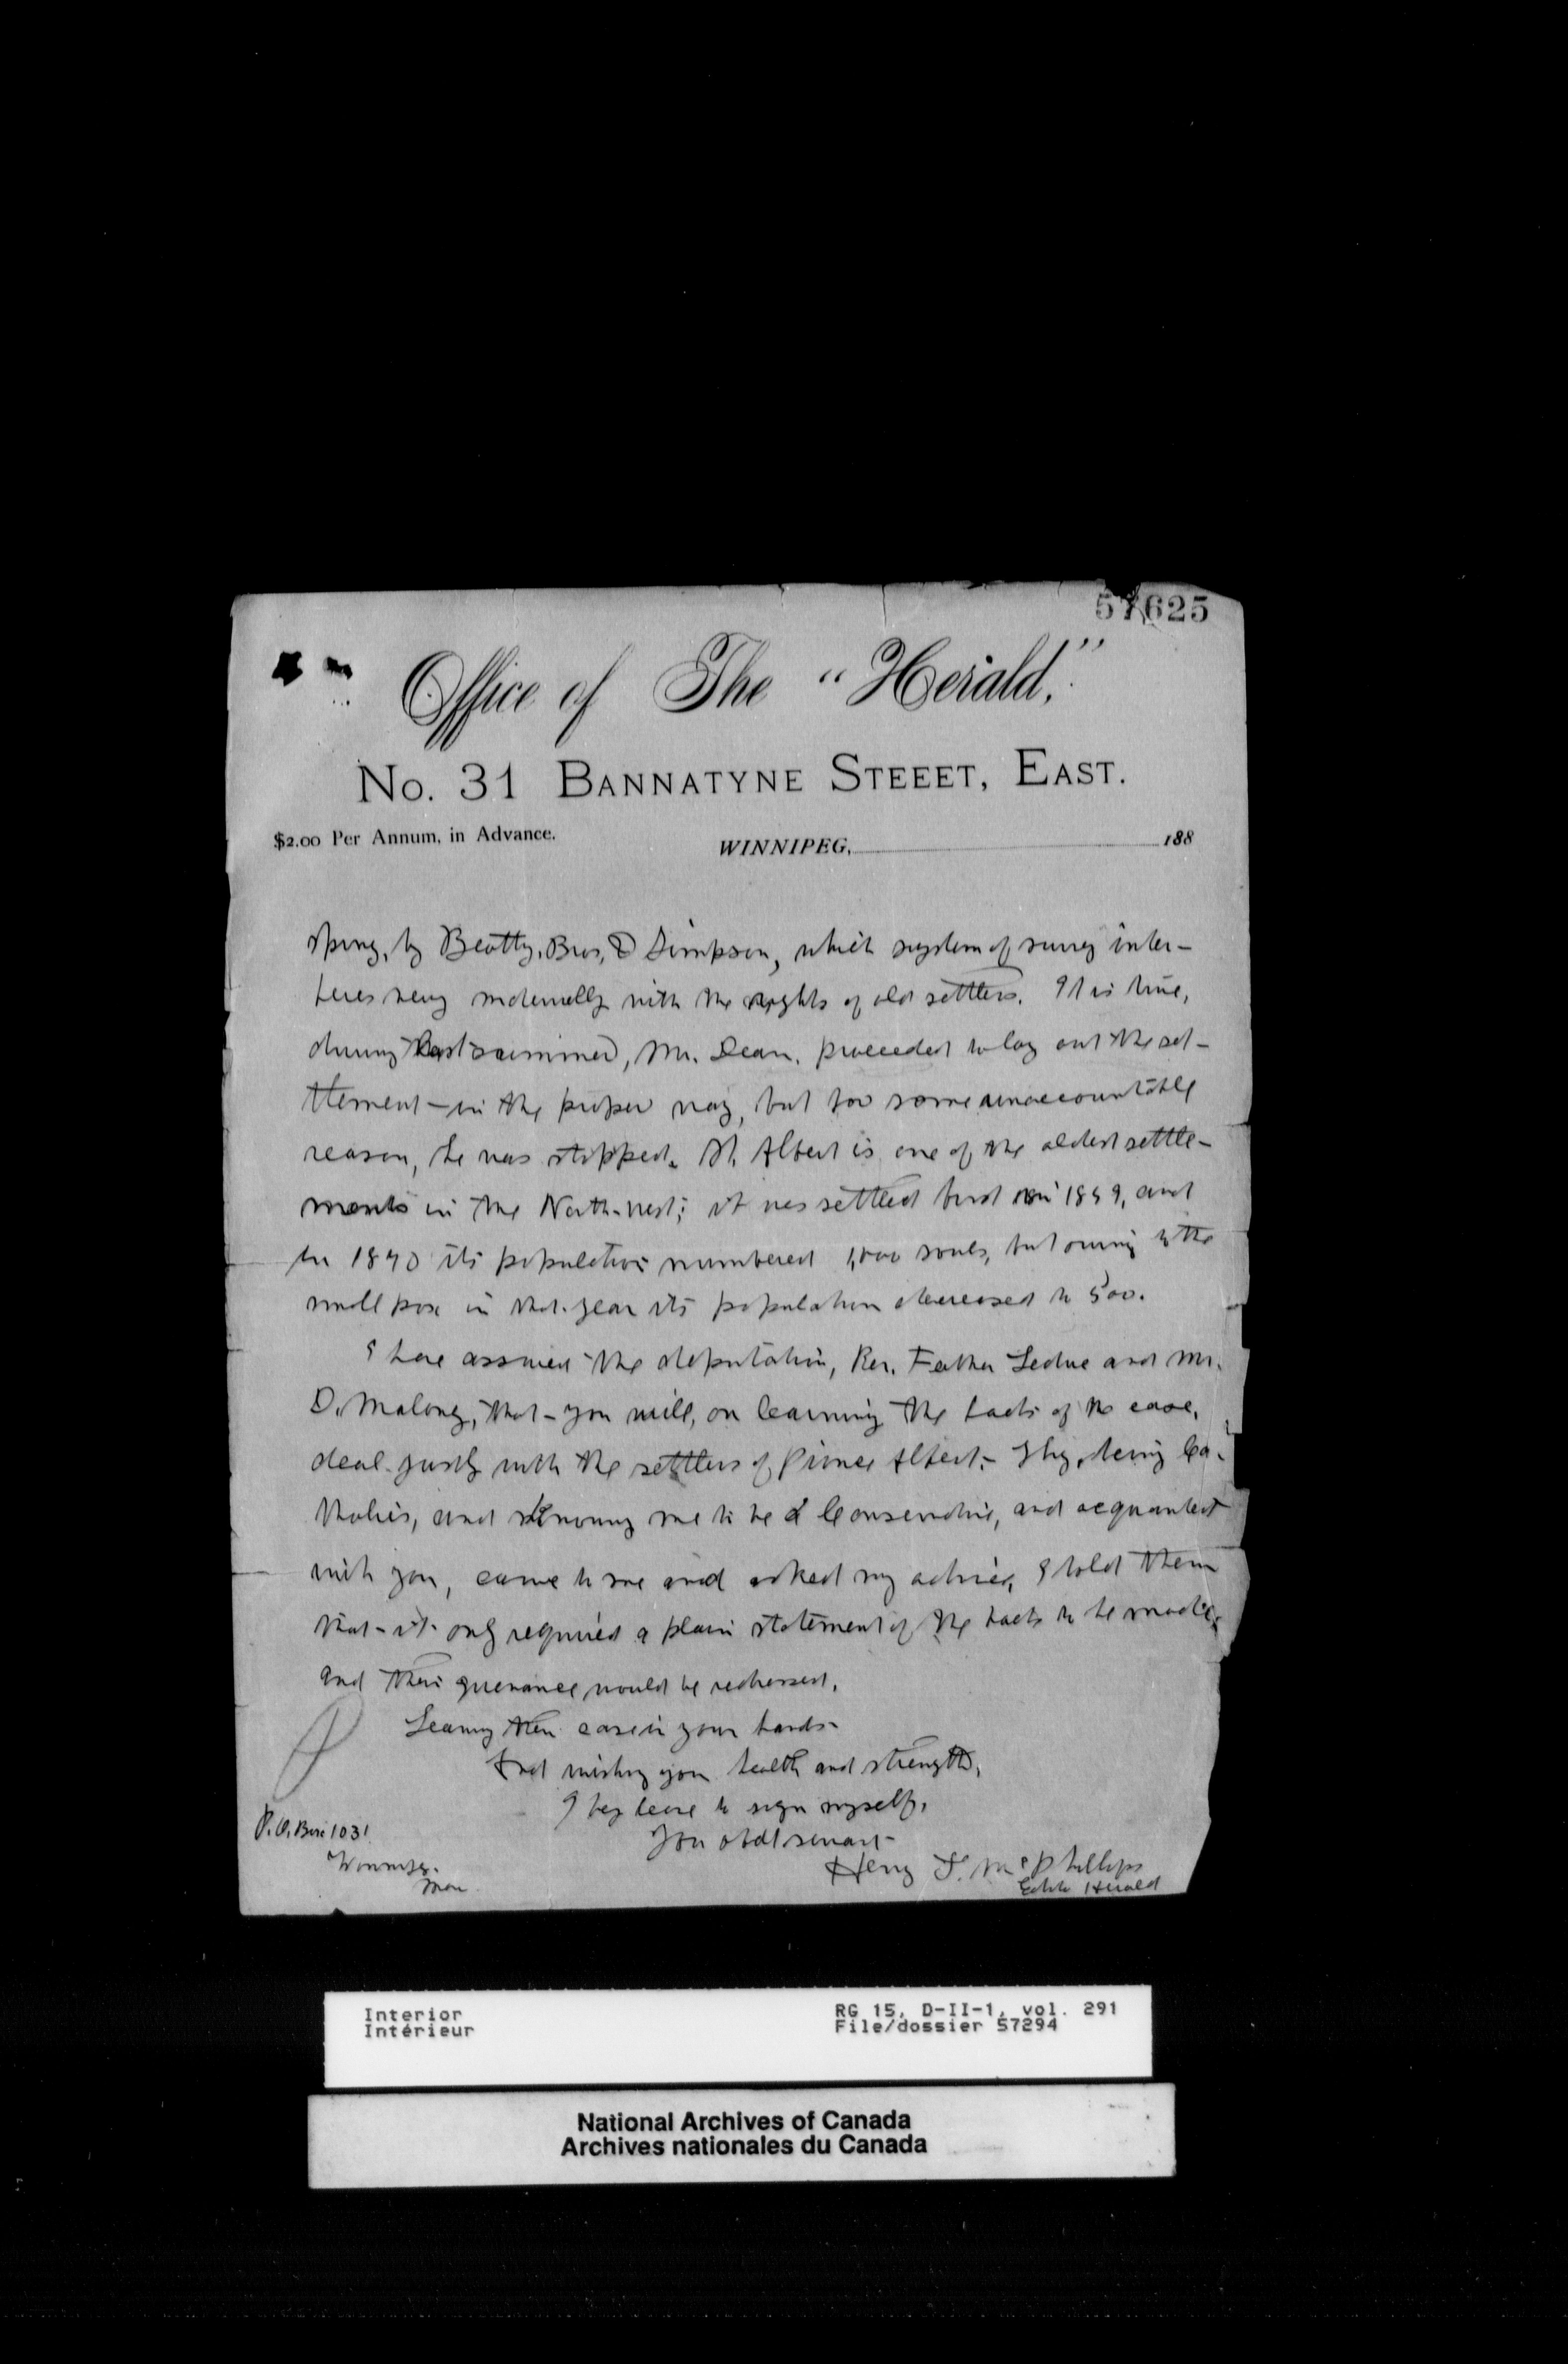 57625
Office of The "Herald."
No. 31 BANNATYNE STEEET, EAST.
$2.00 Per Annum, in Advance.
WINNIPEG, 188
spring, by Beatty, Bros, & Simpson, which system of survey inter-
feres very materially with the rights of old settlers. It is true,
during last summer, Mr. Dean. proceeded to lay out the set-
tlement - in the proper way, but for some unaccountable
reason, he was stopped. St. Albert is one of the oldest settle-
ments in the North-west; it was settled first in 1859, and
in 1870 its population numbered 1,000 souls, but owing to the
small pox in that year its population decreased to 500.
I have assured the deputation, Rev. Father Leduc and Mr.
D. Maloney, that - you will, on learning the facts of the case,
deal justly with the settlers of Prince Albert. - They, being Ca-
tholics, and knowing me to be a Conservative, and acquainted
with you, came to me and asked my advice, I told them
that - it only required a plain statement of the facts to be made,
and their grievance would be redressed.
Leaving their case in your hands -
And wishing you health and strength,
I beg leave to sign myself,
Your obdt servant -
Henry L. McPhillips
Editor Herald
P.O. Box 1031
Winnipeg.
Man
Interior
Intérieur
RG 15, D-II-1, vol. 291
File/dossier 57294
National Archives of Canada
Archives nationales du Canada